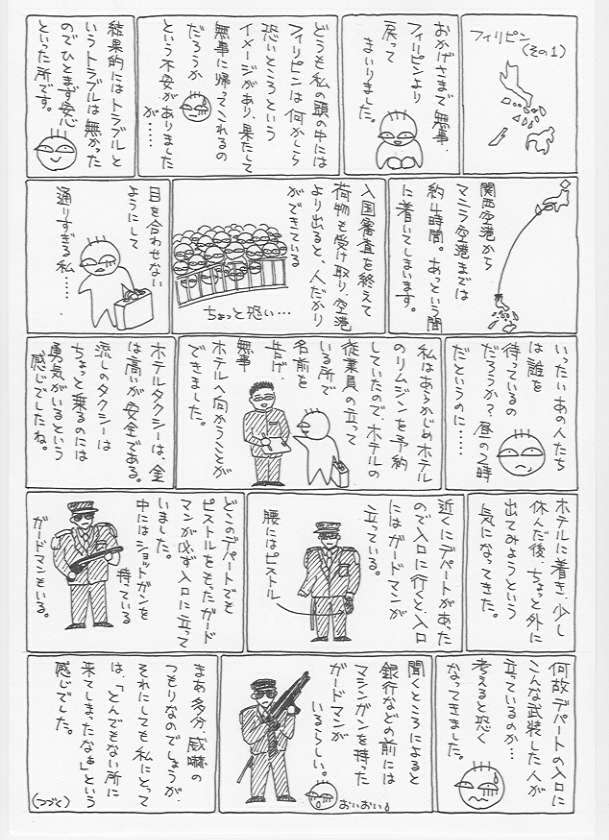 フィリピン
(その1)
おかげさまで無事、
フィリピンより
戻って
まいりました。
どうも私の頭の中には
フィリピンは何かしら
恐いところという
イメージがあり、果たして
無事に帰ってこれるの
だろうか
という不安がありました
が……
結果的にはトラブルと
いうトラブルは無かった
のでひとまず安心
といった所です。
関西空港から
マニラ空港までは
約4時間。あっという間
に着いてしまいます。
入国審査を終えて
荷物を受け取り、空港
より出ると、人だかり
ができている
ちょっと恐い…
目を合わせない
ようにして
通りすぎる私……
いったいあの人たち
は誰を
待っているの
だろうか?昼の2時
だというのに……
私はあらかじめホテル
のリムジンを予約
していたので、ホテルの
従業員の立って
いる所で
名前を
告げ、
無事
ホテルへ向かうことが
できました。
ホテルタクシーは、金
は高いが安全である。
流しのタクシーは
ちょっと乗るのには
勇気がいるという
感じでしたね。
ホテルに着き、少し
休んだ後、ちょっと外に
出てみようという
気になってきた。
近くにデパートがあった
ので入口に行くと、入口
にはガードマンが
立っている。
腰にはピストル
どこのデパートでも
ピストルをもったガード
マンが必ず入口に立って
いました。
中にはショットガンを
持っている
ガードマンもいる。
何故デパートの入口に
こんな武装した人が
立っているのか…
考えると恐く
なってきました。
聞くところによると
銀行などの前には
マシンガンを持った
ガードマンが
いるらしい。
おいおい
まあ多分、威嚇の
つもりなのでしょうが、
それにしても私にとって
は、「とんでもない所に
来てしまったなぁ」という
感じでした。
(つづく)